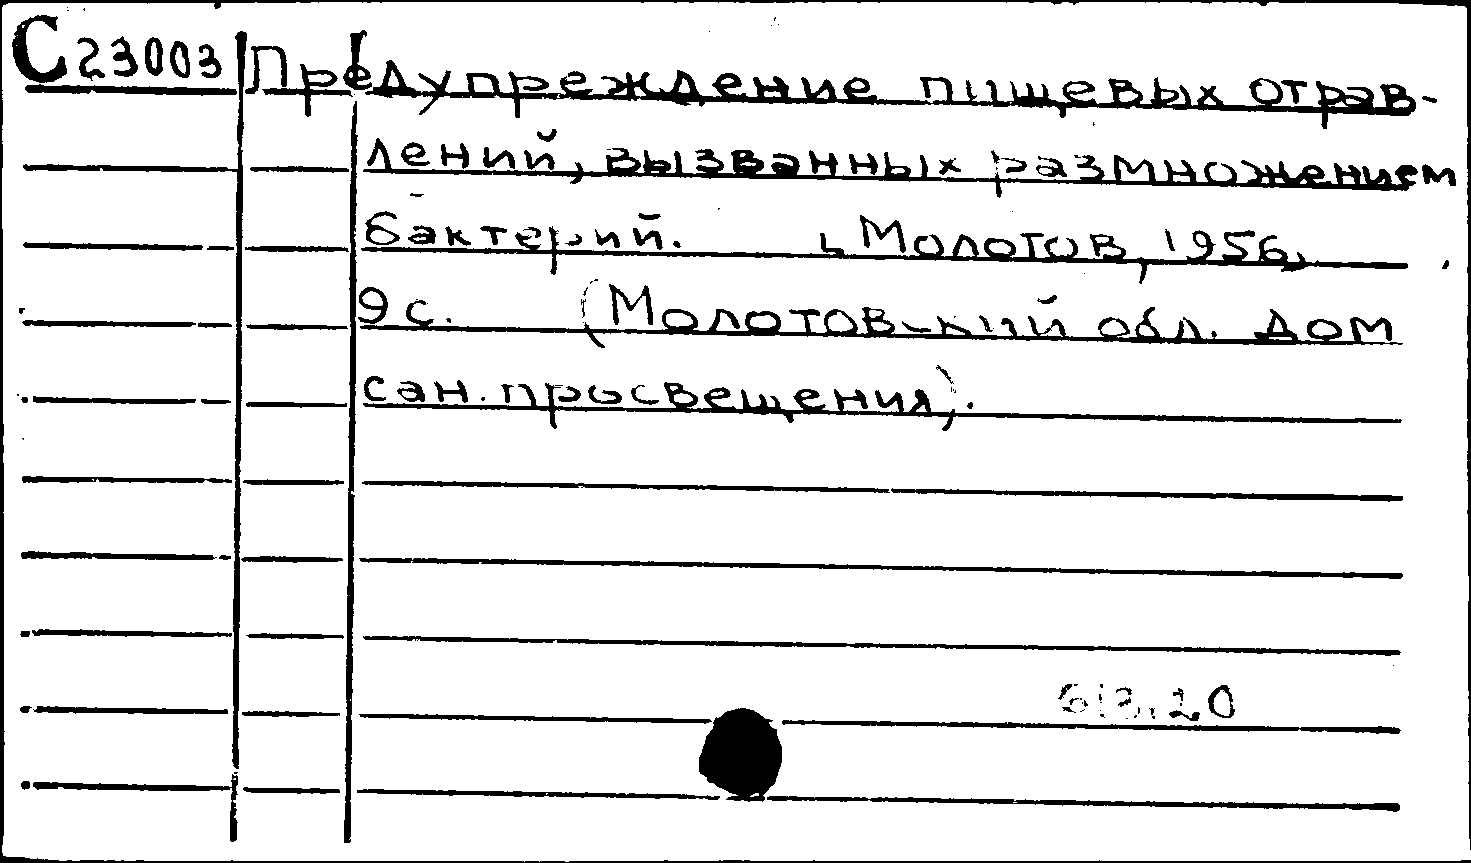 С23003 Предупреждение пищевых отрав-
лений, вызванных размножением
бактерий. Молотов, 1956,
9 с. (Молотовский обл. дом
сан. просвещения).
613.20